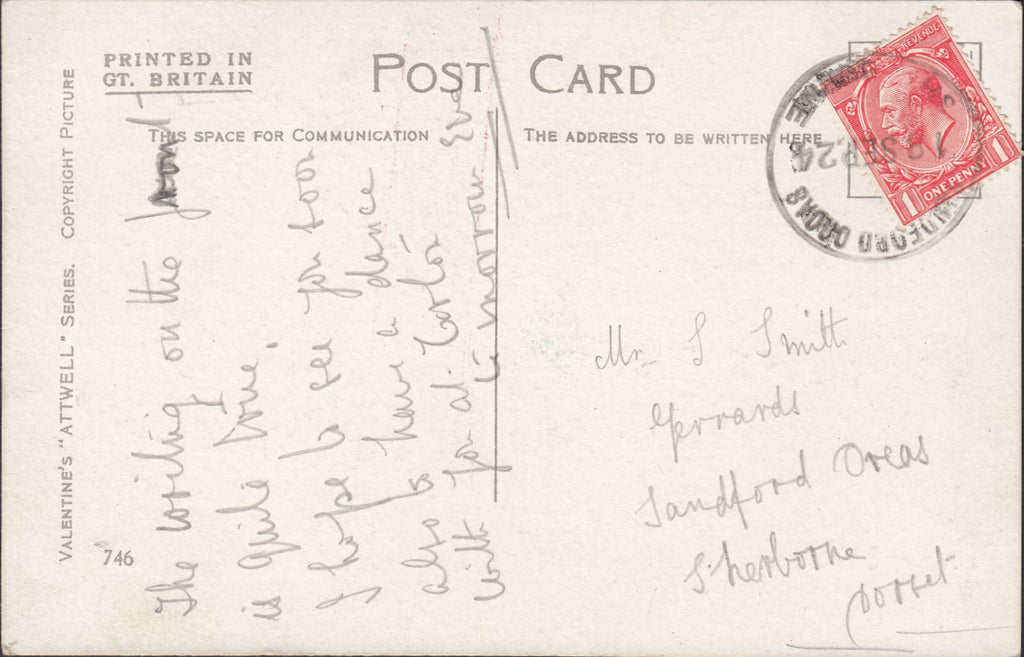 PRINTED IN
GT. BRITAIN
POST CARD
THIS SPACE FOR COMMUNICATION
THE ADDRESS TO BE WRITTEN HERE
VALENTINE'S "ATTWELL" SERIES. COPYRIGHT PICTURE
746
The writing on the front
is quite true.
I hope to see you soon
also to have a dance
with you at
to morrow Eve
Mr S Smith
Gerrards
Sandford Orcas
Sherborne
Dorset
REVENUE
1 ONE PENNY 1
SANDFORD ORCAS
SHERBORNE
19 SEP 24